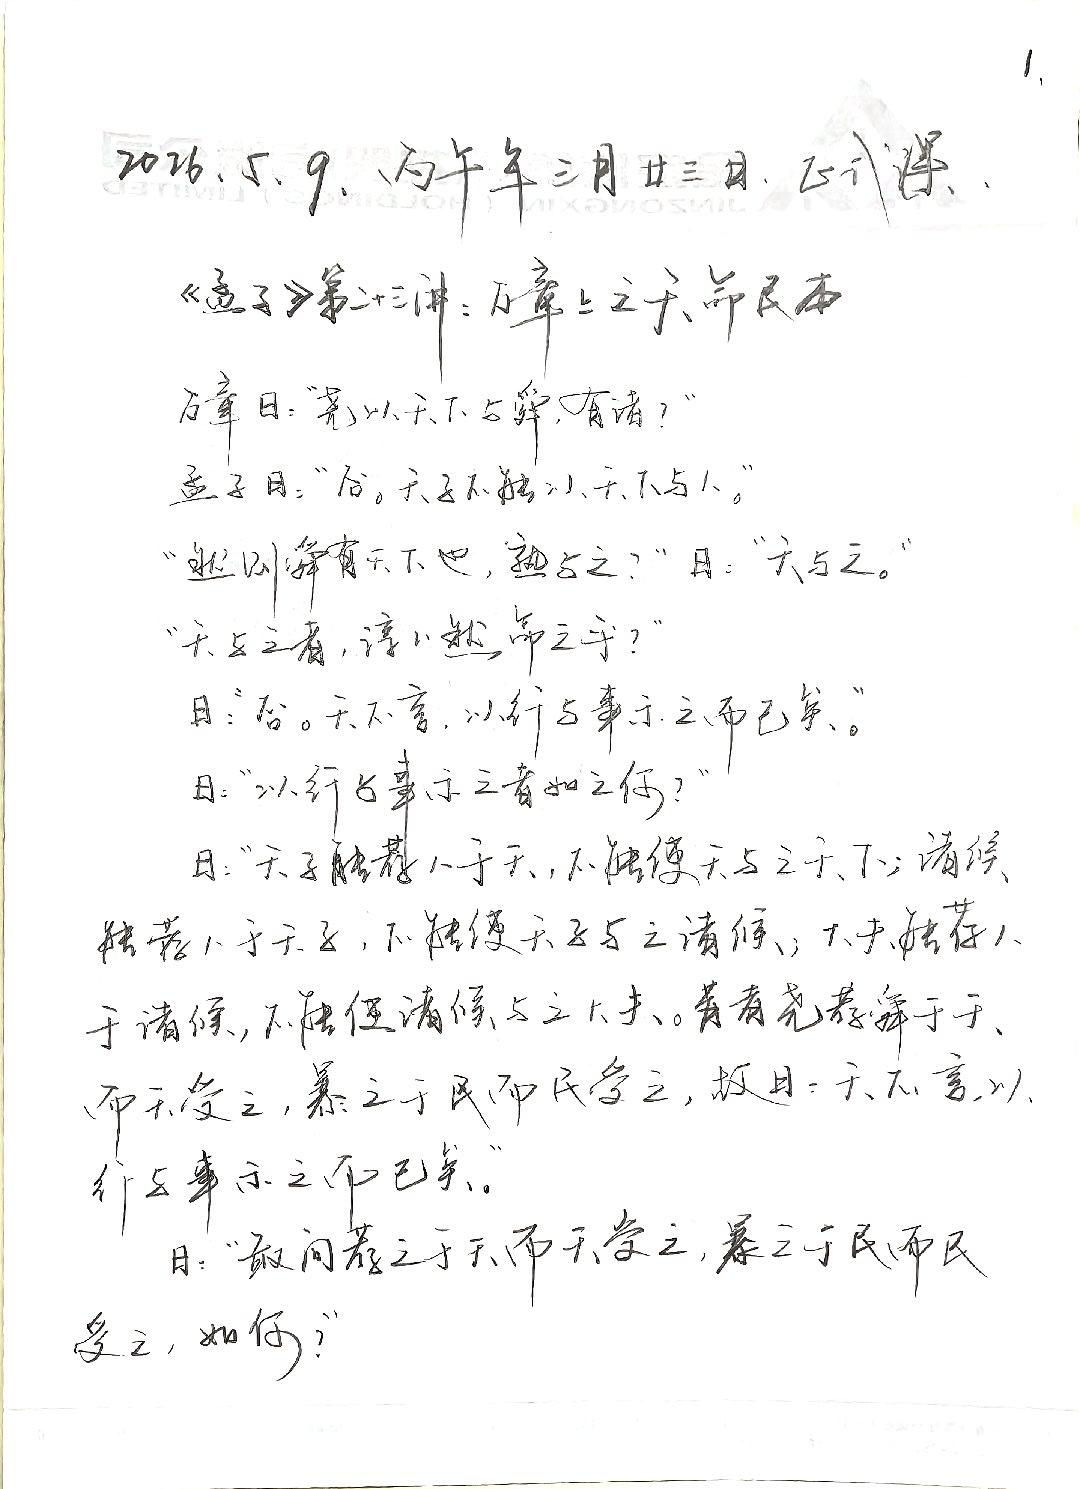 1.
2026.5.9.丙午年三月廿三日.正式课.
《孟子》第二十三讲：万章上之天命民本
万章曰：“尧以天下与舜，有诸？”
孟子曰：“否。天子不能以天下与人。”
“然则舜有天下也，孰与之？”曰：“天与之。”
“天与之者，谆々然命之乎？”
曰：“否。天不言，以行与事示之而已矣。”
曰：“以行与事示之者如之何？”
曰：“天子能荐人于天，不能使天与之天下；诸候
能荐人于天子，不能使天子与之诸候；大夫能荐人
于诸候，不能使诸候与之大夫。昔者尧荐舜于天、
而天受之，暴之于民而民受之，故曰：天不言，以
行与事示之而已矣。”
曰：“敢问荐之于天而天受之，暴之于民而民
受之，如何？”